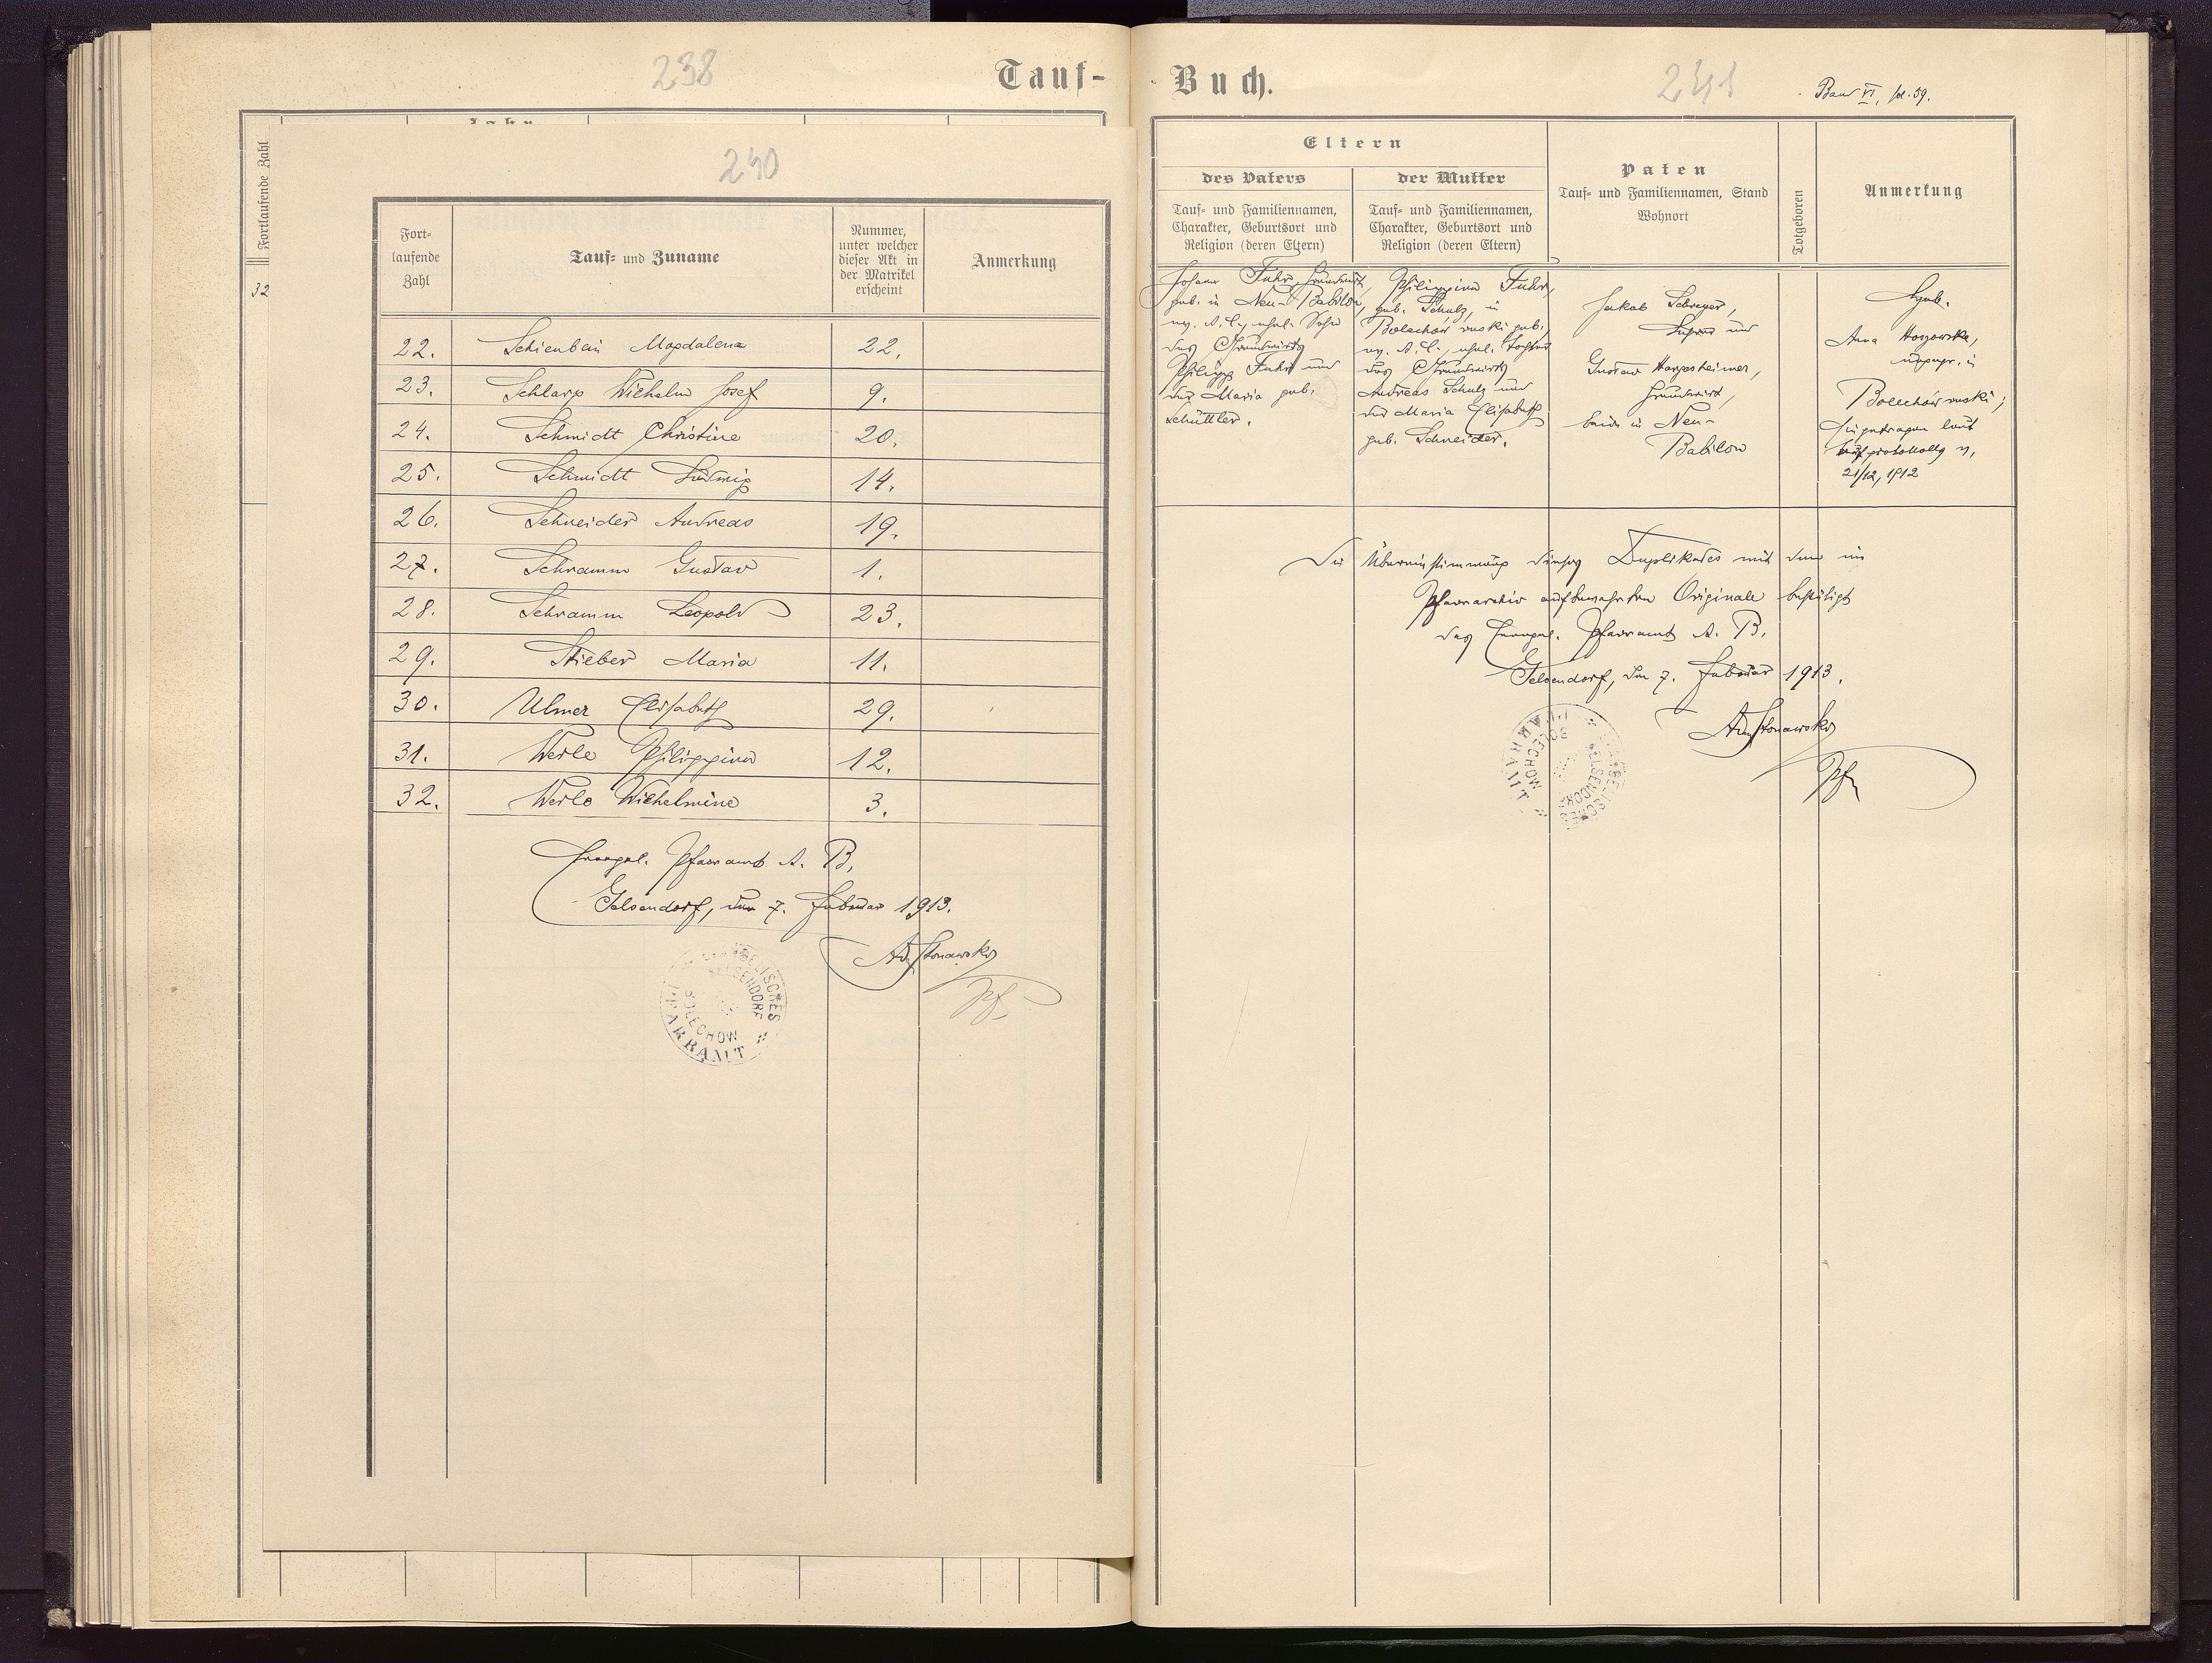 238
Tauf-
Jahr
Fortlaufende Zahl
32
240
Fort-
laufende
Zahl
Tauf- und Zuname
Nummer,
unter welcher
dieser Akt in
der Matrikel
erscheint
Anmerkung
22. Schienbein Magdalena 22.
23. Schlarp Wilhelm Josef 9.
24. Schmidt Christine 20.
25. Schmidt Ludwig 14.
26. Schneider Andreas 19.
27. Schramm Gustav 1.
28. Schramm Leopold 23.
29. Stieber Maria 11.
30. Ulmer Elisabeth 29.
31. Werle Philippine 12.
32. Werle Wilhelmine 3.
Evangel. Pfarramt A. B.
Gelsendorf, den 7. Februar 1913.
Pf.
EVANGELISCHES
GELSENDORF
BOLECHOW
PFARRAMT
Buch.
241
Band VI, fol. 59.
Eltern
des Vaters
der Mutter
Tauf- und Familiennamen,
Charakter, Geburtsort und
Religion (deren Eltern)
Tauf- und Familiennamen,
Charakter, Geburtsort und
Religion (deren Eltern)
Paten
Tauf- und Familiennamen, Stand
Wohnort
Totgeboren
Anmerkung
Johann Fuhr, Grundwirt,
geb. in Neu-Babilon,
ev. A. C., ehel. Sohn
des Grundwirts
Philipp Fuhr und
der Maria geb.
Schüttler.
Philippine Fuhr,
geb. Schulz, in
Bolechów ruski geb.,
ev. A. C., ehel. Tochter
des Grundwirts
Andreas Schulz und
der Maria Elisabeth
geb. Schneider.
Jakob Schreyer,
und
Gustav Harpesheimer,
Grundwirt,
beide in Neu-
Babilon
Heb.
Anna Hoszowska,
ungepr. in
Bolechów ruski;
Eingetragen laut
Taufprotokolls v.
21/12, 1912
Die Übereinstimmung dieses Duplikates mit dem im
Pfarrarchiv aufbewahrten Originale bestätigt
das Evangel. Pfarramt A. B.
Gelsendorf, den 7. Februar 1913.
Pfr
EVANGELISCHES
GELSENDORF
BOLECHOW
PFARRAMT